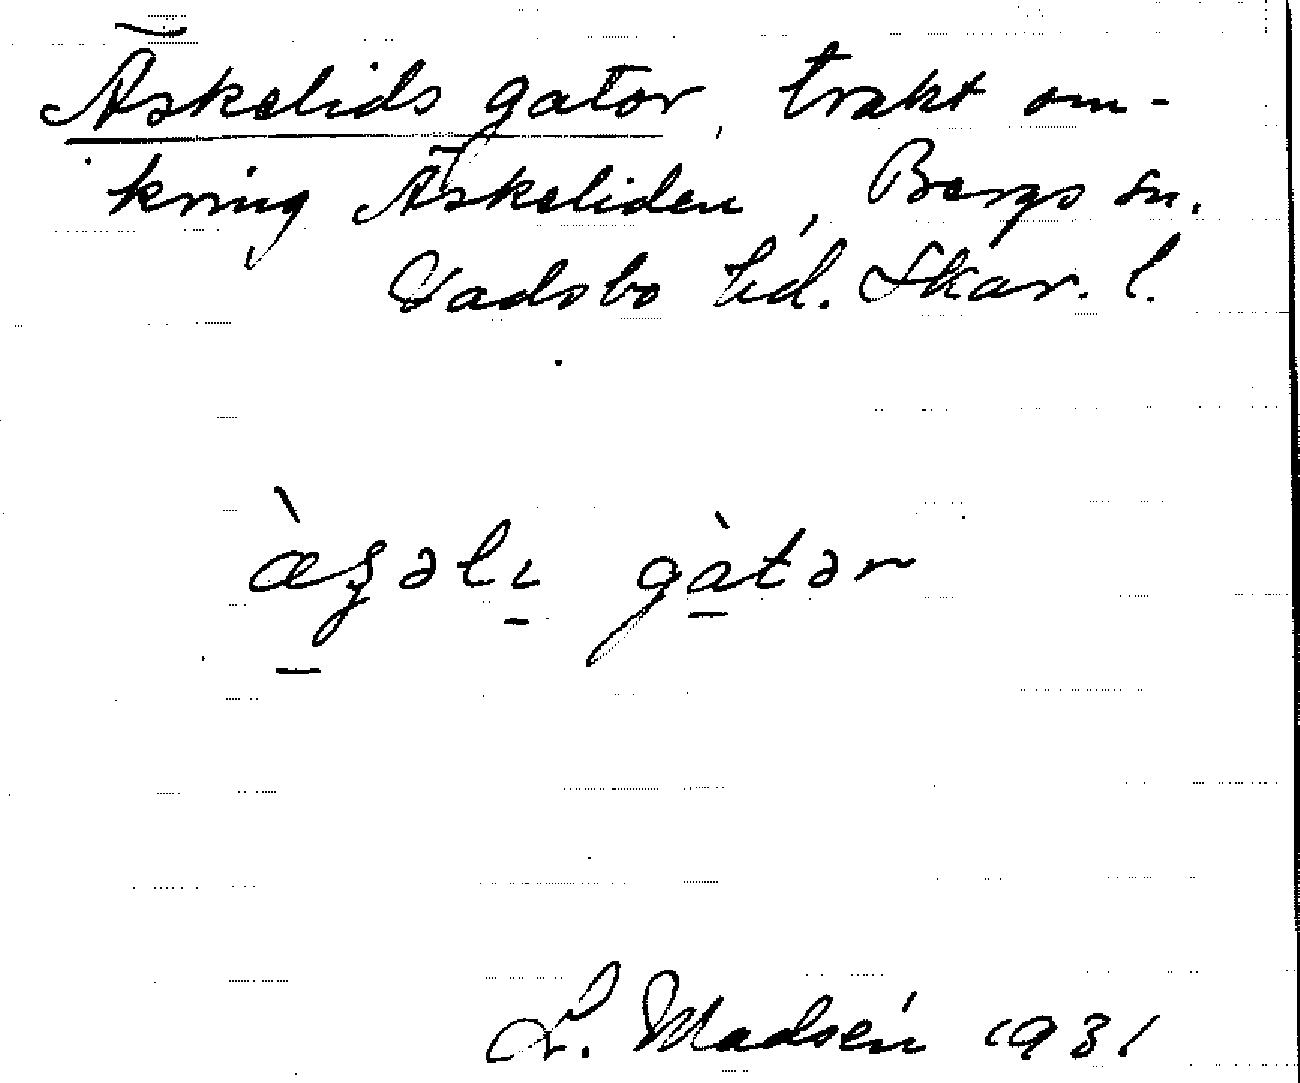 Äskelids gator, trakt om-
kring Äskeliden, Bergs sn.
Vadsbo hd. Skar. l.
gàtər
L. Madsén 1931